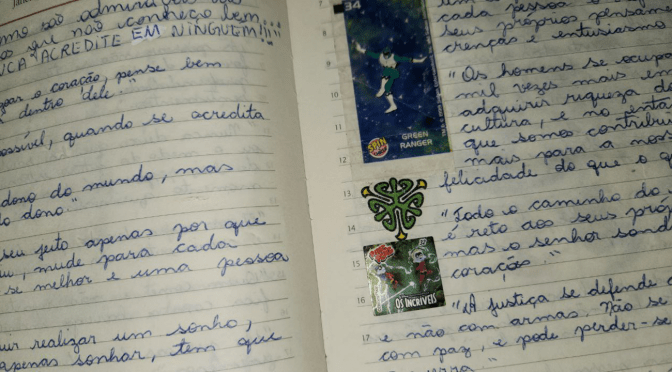 mo são admira
não conheço bem
ACREDITE EM NINGUEM!!!
o coração, pense bem
dentro dele."
possível, quando se acredita
dono do mundo, mas
do dono"
seu jeito apenas por que
mude para cada
se melhor e uma pessoa
realizar um sonho,
apenas sonhar, tem que
34
GREEN
RANGER
OS INCRÍVEIS
7
8
9
10
11
12
13
14
15
16
17
cada pessoa
seus próprios pensam
crenças e entusiasmo
"Os homens se ocupa
mil vezes mais em
adquirir riqueza do
cultura, e no entan
que somos contribui
mais para a noss
felicidade do que o q
"Todo o caminho do
é reto aos seus próp
mas o senhor sond
corações."
"A justiça se defende c
e não com armas. Não se
com paz, e pode perder-se